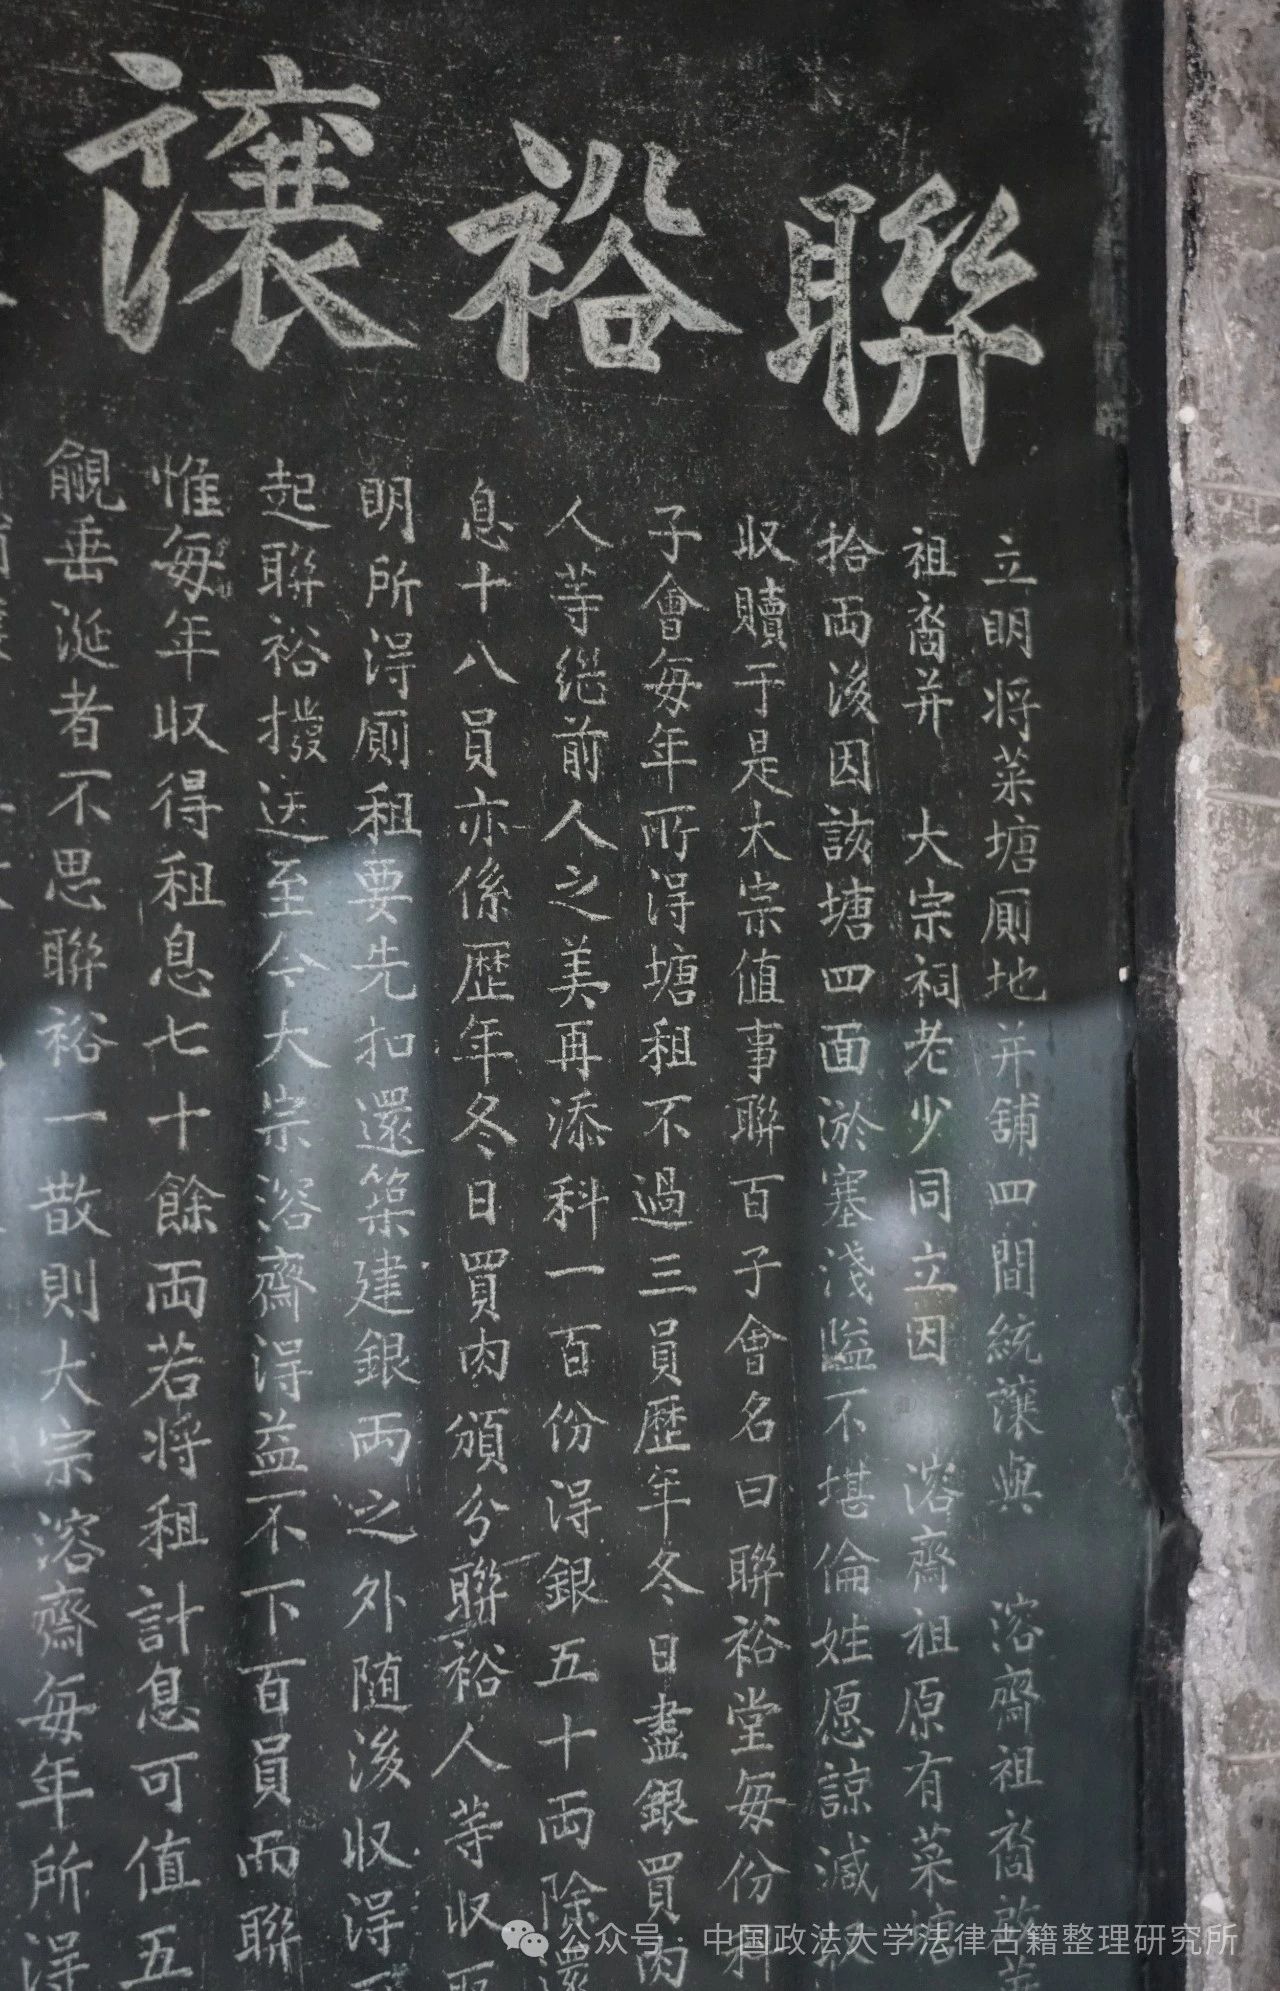 聯裕讓
立明将菜塘厠地并舖四間統讓與　溶齋祖裔
祖裔并　大宗祠老少同立因　溶齋祖原有菜塘
拾両後因該塘四面淤塞淺隘不堪倫姓愿諒減
收贖于是大宗值事聯百子會名曰聯裕堂每份科
子會每年所得塘租不過三員歴年冬日盡銀買肉
人等継前人之美再添科一百份得銀五十両除還
息十八員亦係歴年冬日買肉頒分聯裕人等收
明所得厠租要先扣還築建銀両之外随後收得
起聯裕撥送至今大宗溶齋得益不下百員而聯
惟每年收得租息七十餘両若将租計息可值五
覦垂涎者不思聯裕一散則大宗溶齋每年所得
公众号·中国政法大学法律古籍整理研究所